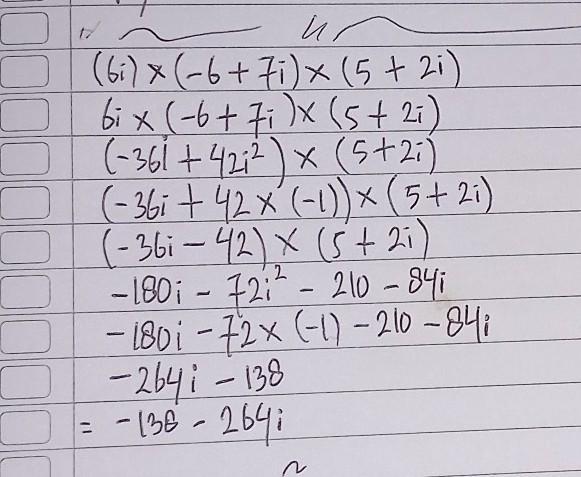 (6i) × (-6 + 7i) × (5 + 2i)
6i × (-6 + 7i) × (5 + 2i)
(-36i + 42i²) × (5 + 2i)
(-36i + 42 × (-1)) × (5 + 2i)
(-36i - 42) × (5 + 2i)
-180i - 72i² - 210 - 84i
-180i - 72 × (-1) - 210 - 84i
-264i - 138
= -138 - 264i